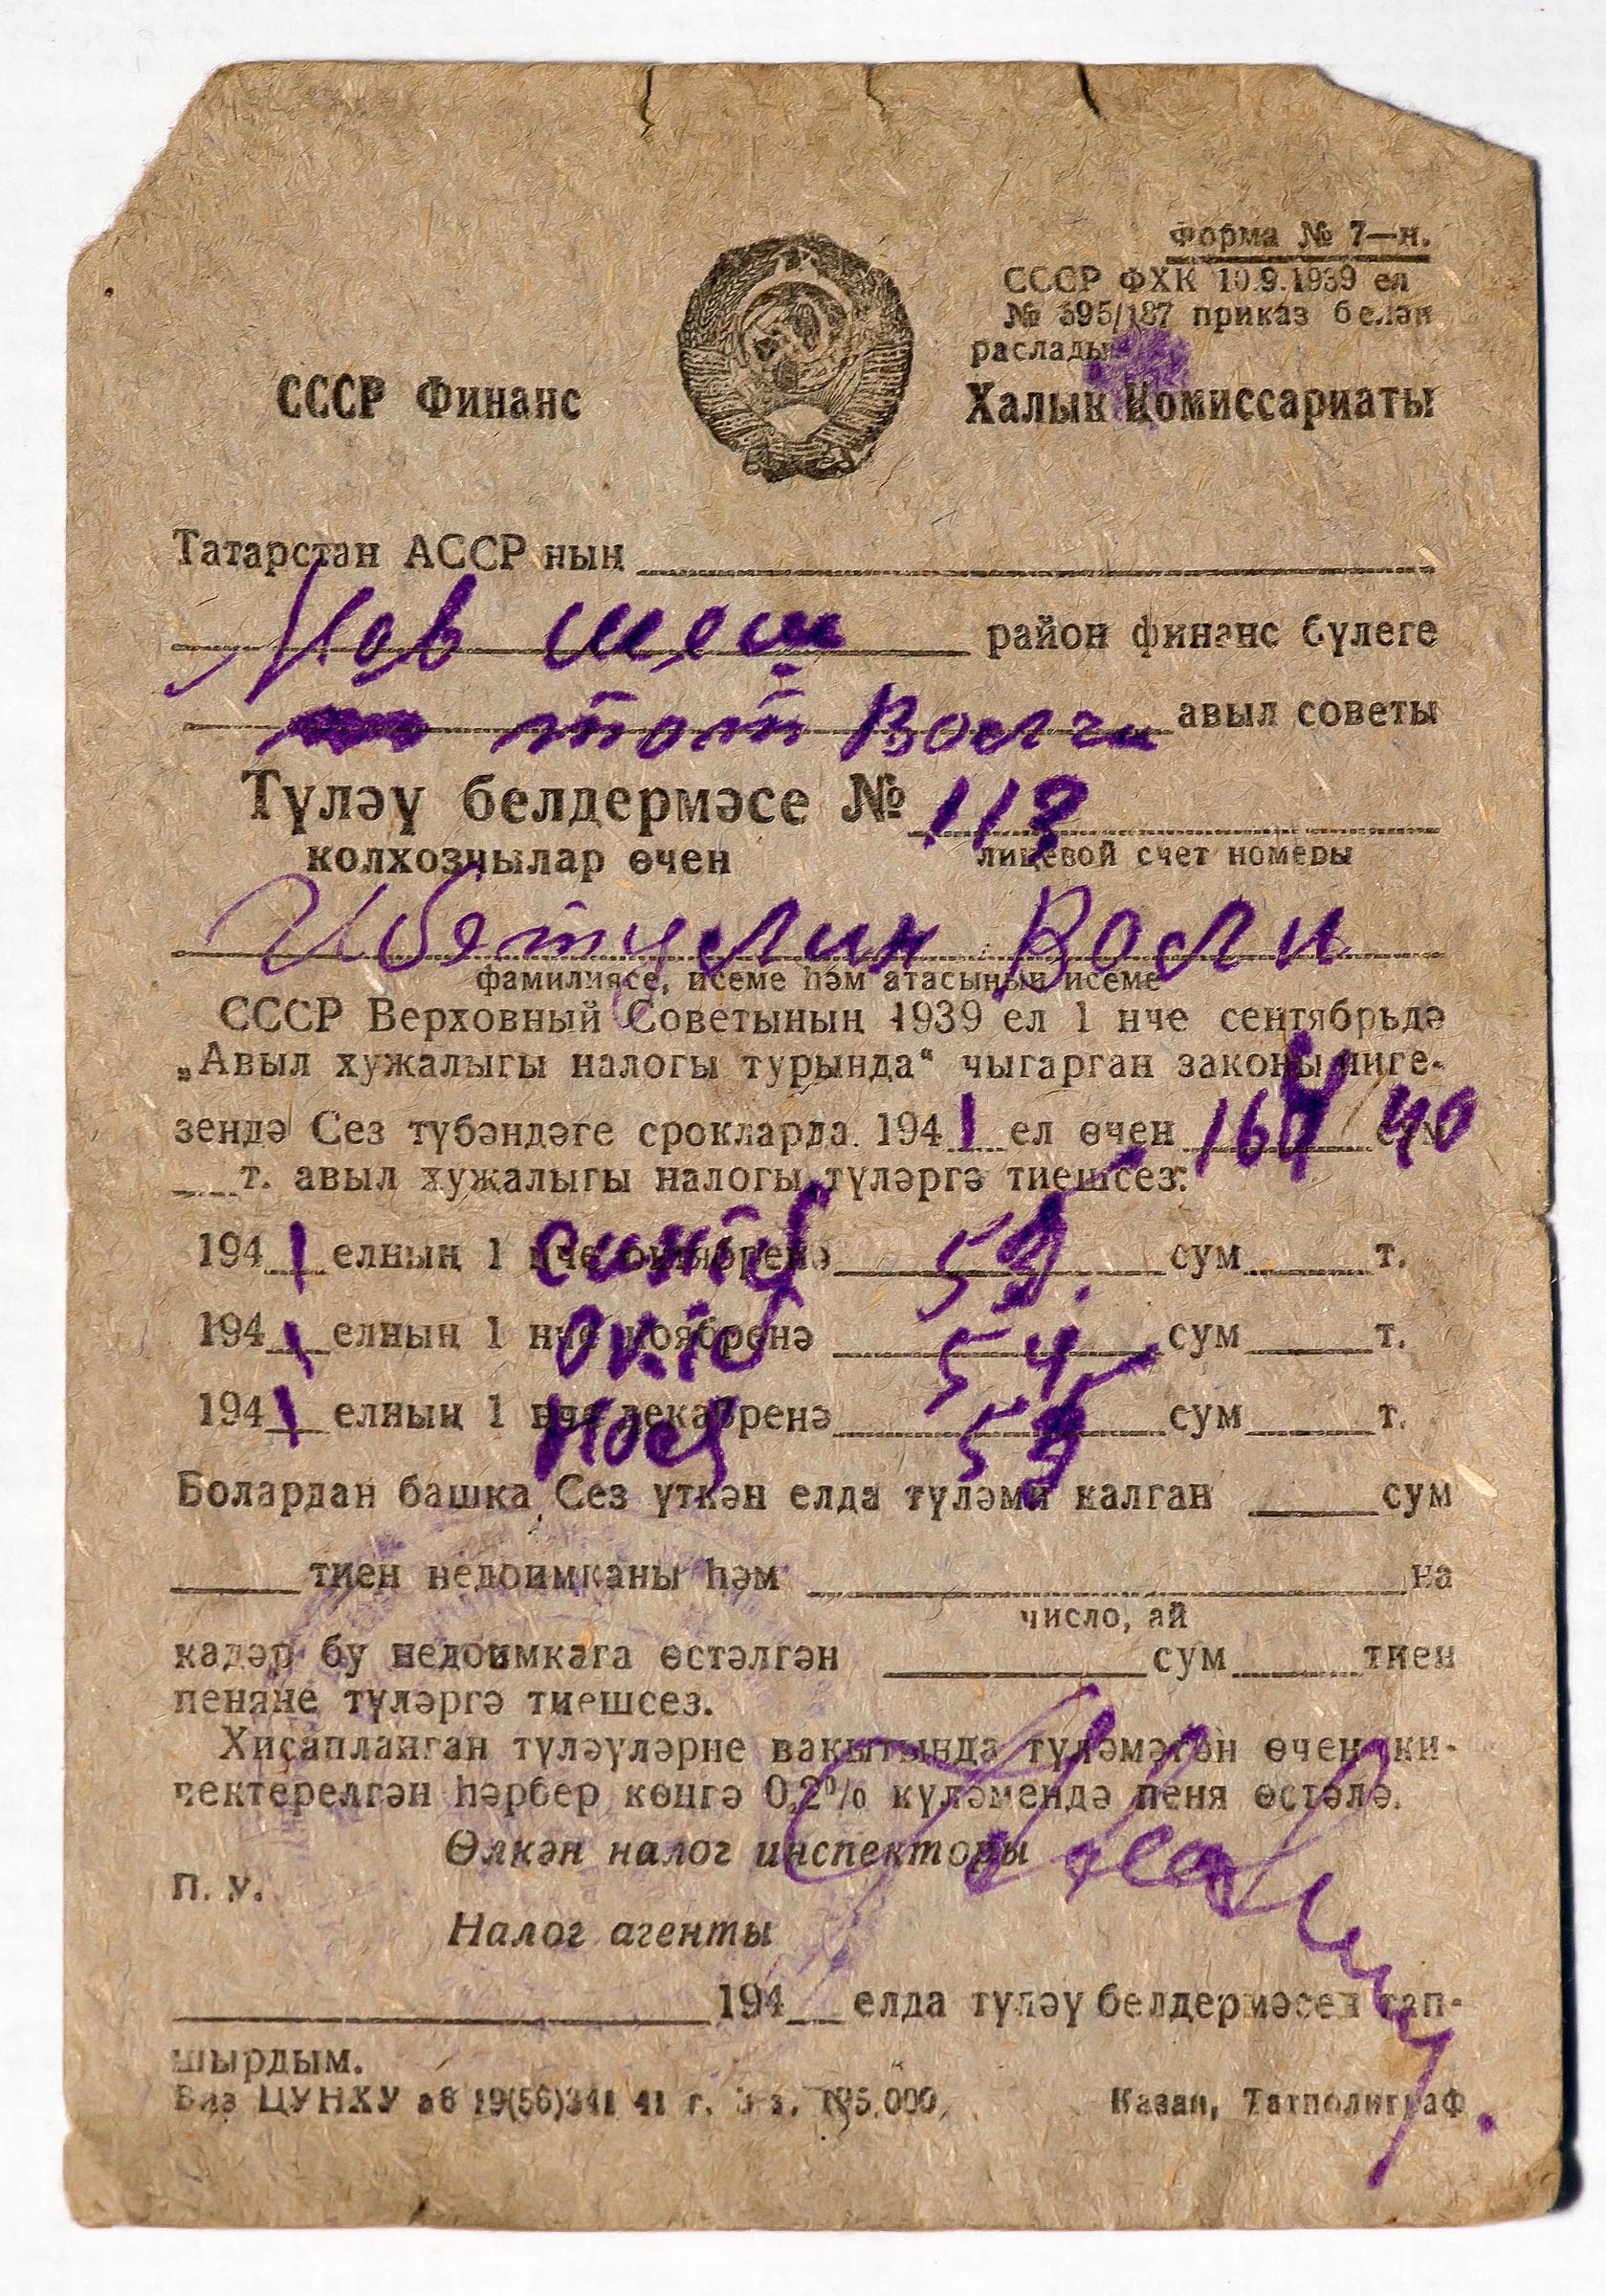 Форма № 7—н.
СССР ФХК 10.9.1939 ел
№ 395/187 приказ белән
расладь
СССР Финанс Халык Комиссариаты
Татарстан АССР ның
Нов шеш район финанс бүлеге
тат Волги авыл советы
Түләү белдермәсе № 113
колхозчылар өчен лицевой счет номеры
Ибәтуелин Воли
фамилиясе, исеме һәм атасының исеме
СССР Верховный Советының 1939 ел 1 нче сентябрьдә
„Авыл хужалыгы налогы турында“ чыгарган законы ниге-
зендә Сез түбәндәге срокларда 1941 ел өчен 164 40
т. авыл хужалыгы налогы түләргә тиешсез:
1941 елның 1 нче октябренә сум т.
1941 елның 1 нче ноябренә 54 сум т.
1941 елның 1 нче декабренә сум т.
Болардан башка Сез үткән елда түләми калган сум
тиен недоимканы һәм на
число, ай
кадәр бу недоимкага өстәлгән сум тиен
пеняне түләргә тиешсез.
Хисапланган түләүләрне вакытында түләмәгән өчен ки-
чектерелгән һәрбер көнгә 0,2% күләмендә пеня өстәлә.
Өлкән налог инспекторы
П. У.
Налог агенты
194 елда түләү белдермәсен тап-
шырдым.
ЦУНХУ 19(56)341 41 г. Казан, Татполиграф.